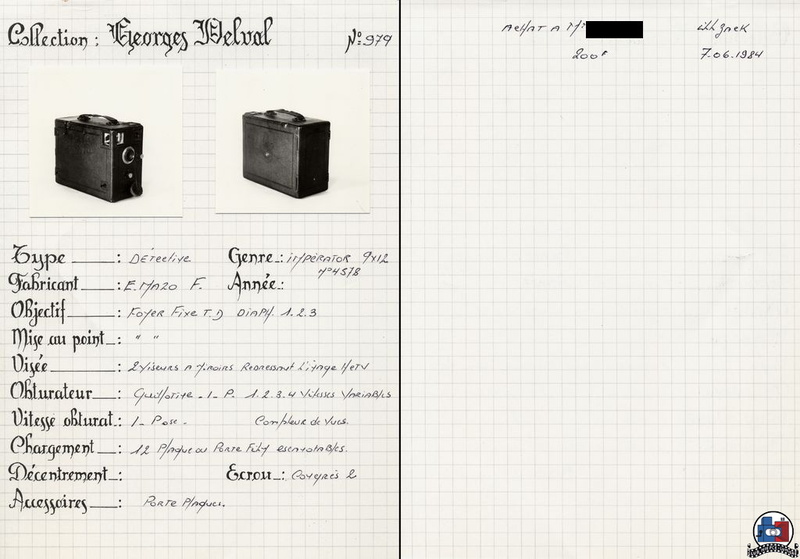 Collection : Georges Delval N°: 979
Type : Détective Genre : iMPÉRATOR 9x12
N°4578
Fabricant : E. MAZO F. Année :
Objectif : Foyer Fixe T.D DiAPH. 1.2.3
Mise au point : " "
Visée : 2 Viseurs A Miroirs Redressant L'image H et V
Obturateur : Guillotine - I - P. 1.2.3.4 Vitesses Variables
Vitesse obturat. : I - Pose - Compteur de Vues.
Chargement : 12 Plaques ou Porte Film escamotables.
Décentrement : Ecrou : Congrès 2
Accessoires : Porte Plaques.
ACHAT A Mr
200F 7.06.1984